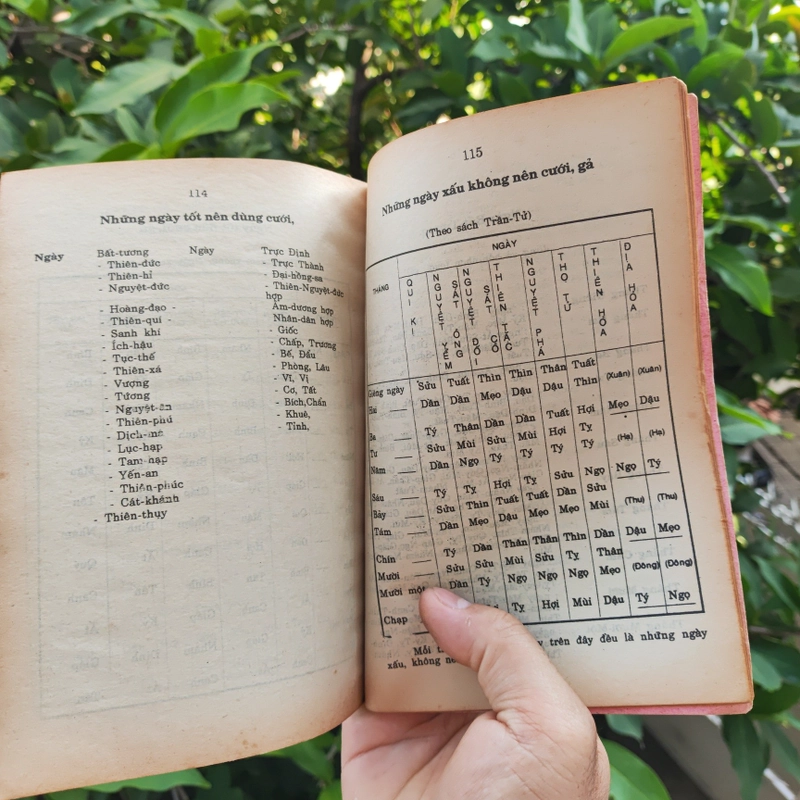 114
Những ngày tốt nên dùng cưới,
Ngày Bất-tương Ngày Trực Định
- Thiên-đức - Trực Thành
- Thiên-hỉ - Đại-hồng-sa
- Nguyệt-đức - Thiên-Nguyệt-đức
hợp
- Hoàng-đạo - Âm-dương hợp
- Thiên-quí - Nhân-dân hợp
- Sanh khí - Giốc
- Ích-hậu - Chấp, Trương
- Tục-thế - Bế, Đẩu
- Thiên-xá - Phòng, Lâu
- Vượng - Vĩ, Vị
- Tương - Cơ, Tất
- Nguyệt-ân - Bích,Chẩn
- Thiên-phú - Khuê,
- Dịch-mã - Tỉnh,
- Lục-hạp
- Tam-hạp
- Yến-an
- Thiên-phúc
- Cát-khánh
- Thiên-thụy
115
Những ngày xấu không nên cưới, gả
(Theo sách Trần-Tử)
NGÀY
THÁNG QUI KI NGUYỆT YỂM SÁT ÔNG NGUYỆT ĐỐI SÁT CÔ THIÊN TẶC NGUYỆT PHÁ THỌ TỬ THIÊN HỎA ĐỊA HỎA
Giêng ngày Sửu Tuất Thìn Thìn Thân Tuất (Xuân) (Xuân)
Hai — Dần Dần Mẹo Dậu Dậu Thìn
Mẹo Dậu
Ba — Tý Thân Dần Dần Tuất Hợi
Tư — Sửu Mùi Sửu Mùi Hợi Tỵ (Hạ) (Hạ)
Năm — Dần Ngọ Tý Tý Tý Tý
Ngọ Tý
Sáu — Tý Tỵ Hợi Tỵ Sửu Ngọ
Bảy — Sửu Thìn Tuất Tuất Dần Sửu (Thu) (Thu)
Tám — Dần Mẹo Dậu Mẹo Mẹo Mùi
Dậu Mẹo
Chín — Tý Dần Thân Thân Thìn Dần
Mười — Sửu Sửu Mùi Sửu Tỵ Thân (Đông) (Đông)
Mười một Dần Tý Ngọ Ngọ Ngọ Mẹo
Chạp — Tỵ Hợi Mùi Dậu Tý Ngọ
Mỗi trên đây đều là những ngày
xấu, không